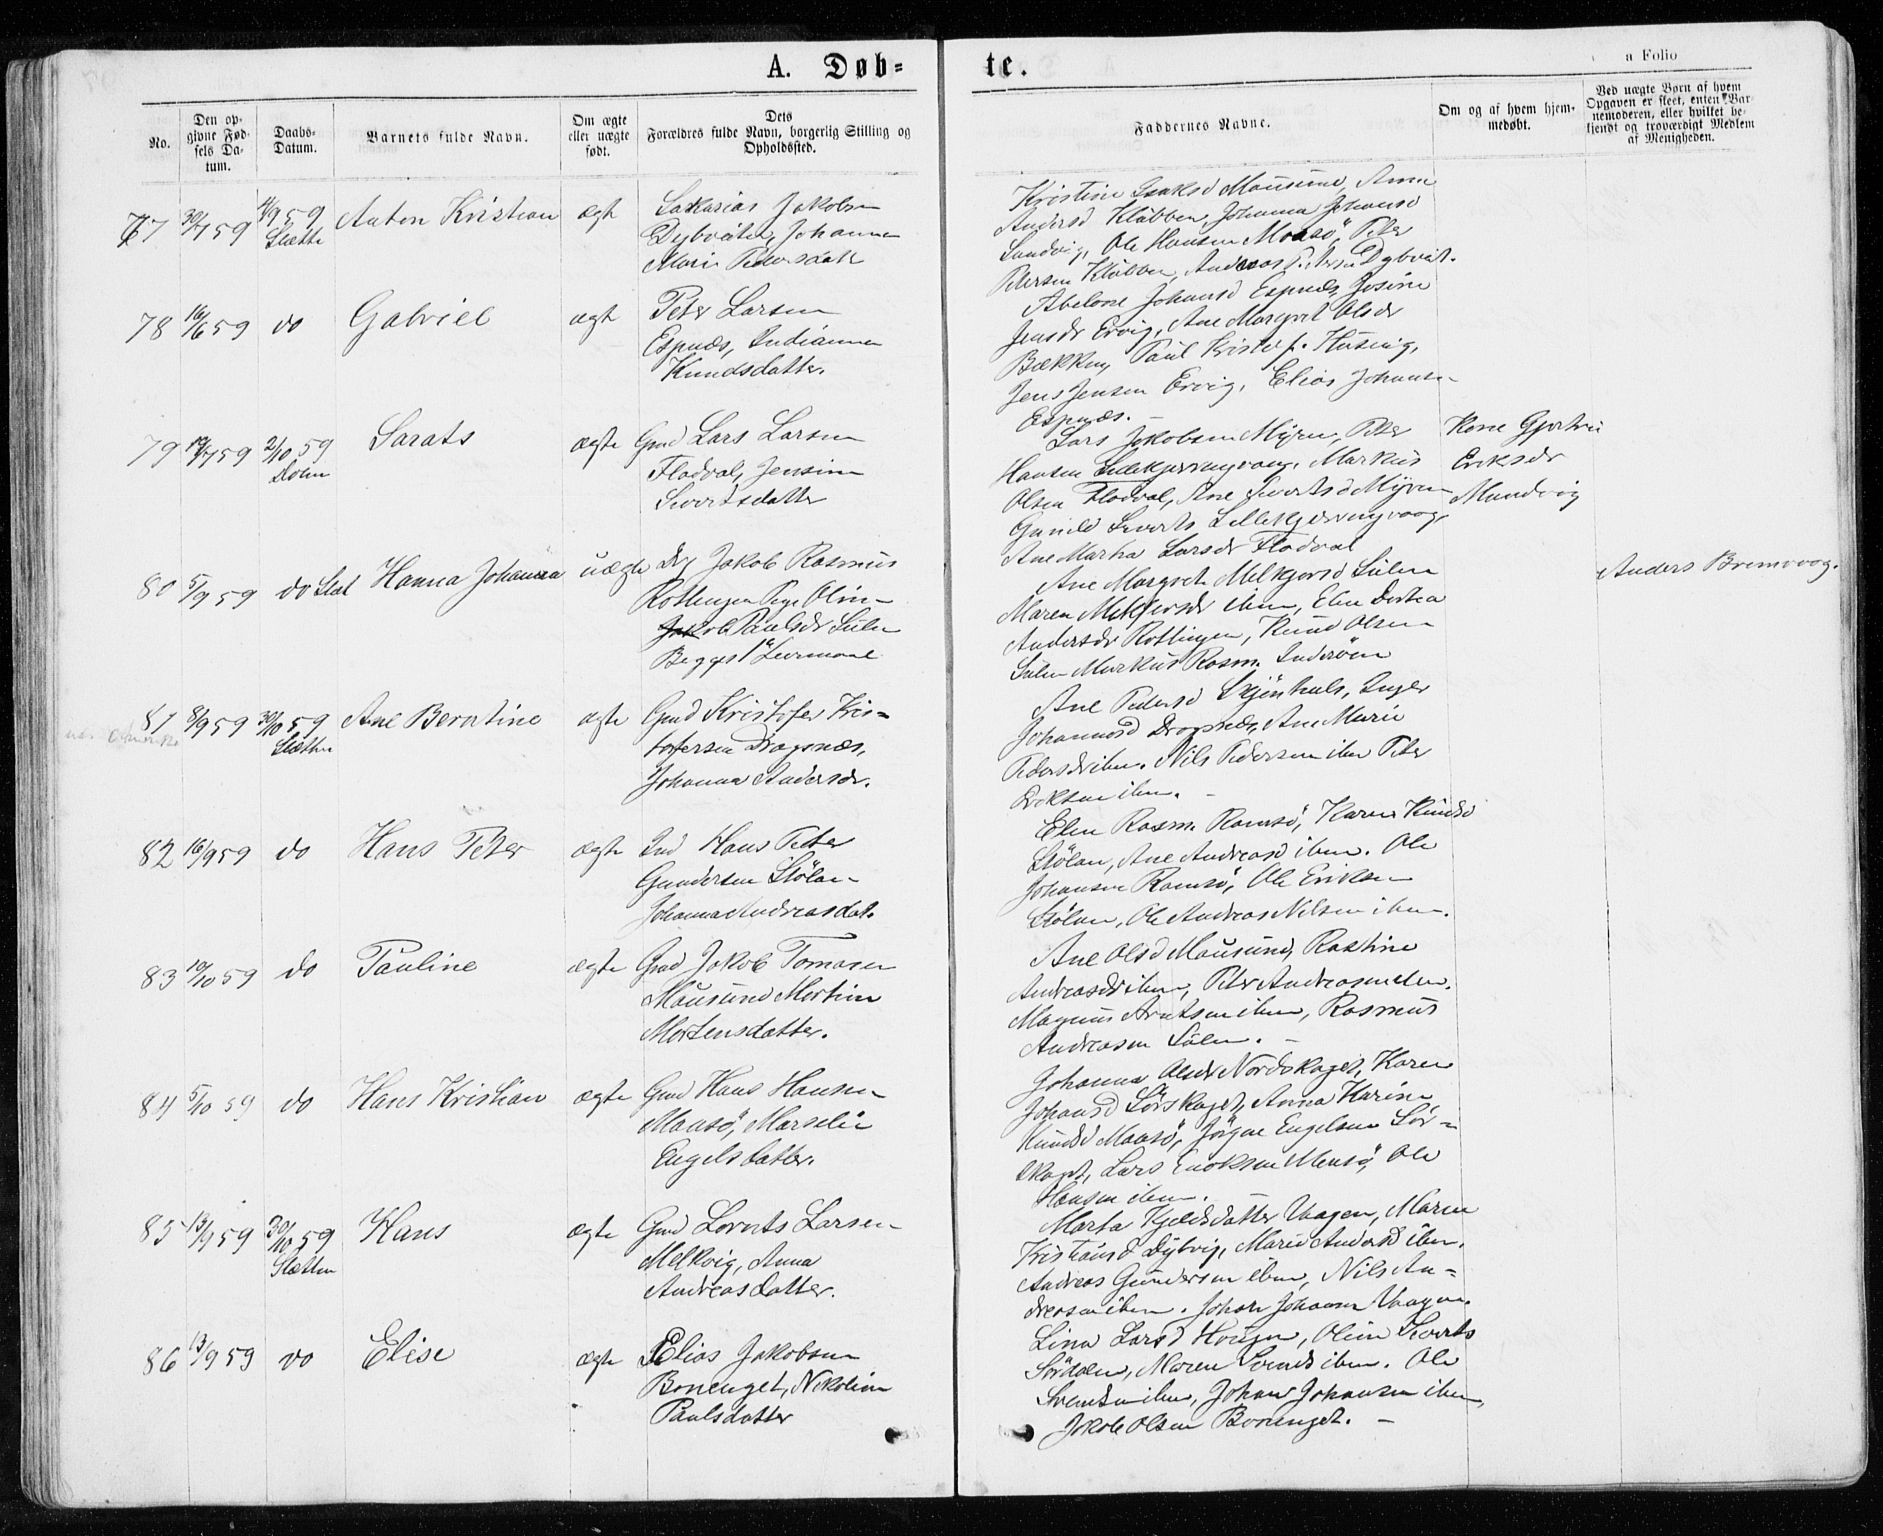 A. Døb-
te.
a Folio
No.
Den op-
givne Fød-
sels Da-
tum.
Daabs-
Datum.
Barnets fulde Navn.
Om ægte
eller uægte
født.
Dets
Forældres fulde Navn, borgerlig Stilling og
Opholdssted.
Faddernes Navne.
Om og af hvem hjem-
medøbt.
Ved uægte Børn af hvem
Opgaven er skeet, enten Bar-
nemoderen, eller hvilket be-
kjendt og troværdigt Medlem
af Menigheden.
77 30/7 59 4/9 59 Anton Kristian ægt Sakarias Jakobsen
Slætte Dybvik, Johanna
Marie Pedersdatt
Kristine Mausund, Anne
Andersd Klubben, Johanna Johansd
Sandvig, Ole Hansen Maasö, Peter
Petersen Klubben, Andreas Dybvik.
78 16/6 59 do Gabriel ægt Peter Larsen
Espnæs, Indianna
Knudsdatter.
Abelone Johansd Espnæs, Josine
Jensdr Ervig, Ane Margret Olsdr
Bækken, Paul Kristof.
Jens Jensen Ervig, Elias Johansen
Espnæs. —
79 19/7 59 2/10 59 Sarats ægte Gmd Lars Larsen
Dolm Flodval, Jensine
Sivertsdatter
Lars Jakobsen Myren, Peter
Hansen Lillekjerringvaag, Markus
Olsen Flodval, Ane Sivertsd Myren
Gunild Siverts Lillekjerringvaag,
Ane Marta Larsdr Flodval
Kone Gjertru
Eriksdr
Mundvig
80 5/9 59 do Slæt Hanna Johanna uægte Drg Jakob Rasmus
Rottingen Pige Olin-
Jakob Paulsdr Sulen
Begges 1e Leiermaal
Ane Margret Melkjorsd Sulen
Maren Melkjorsdr ibm, Elen Dortea
Andersdr Rottingen, Knud Olsen
Sulen Markus Rasm. Inderöen
Anders Bremvog.
81 8/9 59 30/10 59 Ane Berntine ægte Gmd Kristofer Kris-
Slætten tofersen Dragsnæs,
Johanna Andersdr.
Ane Pedersd Skjönhals, Inger
Johannesd Dragsnæs, Ane Marie
Pedersdr ibm. Nils Pedersen ibm Peter
Eriksen ibm. —
82 16/9 59 do Hans Peter ægte Ind Hans Peter
Gundersen Stölan
Johanna Andreasdat.
Elen Rasm. Ramsö, Karen Knudsd
Stölan, Ane Andreasd ibm. Ole
Johansen Ramsö, Ole Eriksen
Stölan, Ole Andreas Nilsen ibm.
83 10/10 59 do Pauline ægte Gmd Jakob Tomasen
Mausund Martine
Mortensdatter.
Ane Olsd Mausund, Rastine
Andreasdr ibm, Peter Andreasen ibm.
Magnus Arntsen ibm, Rasmus
Andreasen Sulen. —
84 5/10 59 do Hans Kristian ægte Gmd Hans Hansen
Maasö, Marselie
Engelsdatter.
Johanna Olsdr Nordskaget, Karen
Johansd Sörskaget, Anna Karine
Knudsd Maasö, Jörgen Engelsen Sör-
skaget, Lars Enoksen Maasö, Ole
Hansen ibm.
85 13/9 59 30/10 59 Hans ægte Gmd Lornts Larsen
Slætten Melkvig, Anna
Andreasdatter.
Marta Kjeldsdatter Vaagen, Maren
Kristiansd Dybvig, Marie Andersd ibm.
Andreas Gundersen ibm, Nils An-
dreasen ibm. Johan Johansen Vaagen.
86 13/9 59 do Elise ægte Elias Jakobsen
Bonenget, Nikoline
Paulsdatter
Lina Larsd Hougen, Oline Siverts
Sördalen, Maren Svends ibm. Ole
Svendsen ibm, Johan Johansen ibm,
Jakob Olsen Bonenget. —